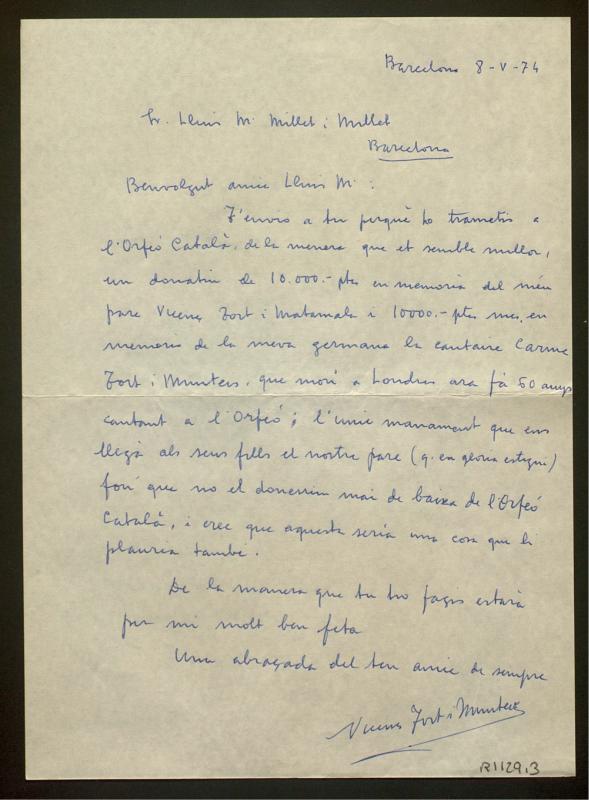 Barcelona 8-V-74
Sr. Lluis Mª Millet i Millet
Barcelona
Benvolgut amic Lluis Mª:
T'envio a tu perquè ho trametis a
l'Orfeó Català, de la manera que et semble millor,
un donatiu de 10.000.- ptes en memoria del meu
pare Vicenç Fort i Matamala i 10000.- ptes mes, en
memoria de la meva germana la cantaire Carme
Fort i Munters, que morí a Londres ara fà 60 anys
cantant a l'Orfeó; l'unic manament que ens
llegà als seus fills el nostre pare (q. en gloria estigui)
foú que no el donessim mai de baixa de l'Orfeó
Català, i crec que aquesta seria una cosa que li
plauria també.
De la manera que tu ho fagis estarà
per mi molt ben feta
Una abraçada del teu amic de sempre
Vicenç Fort i Munters
R1129,3